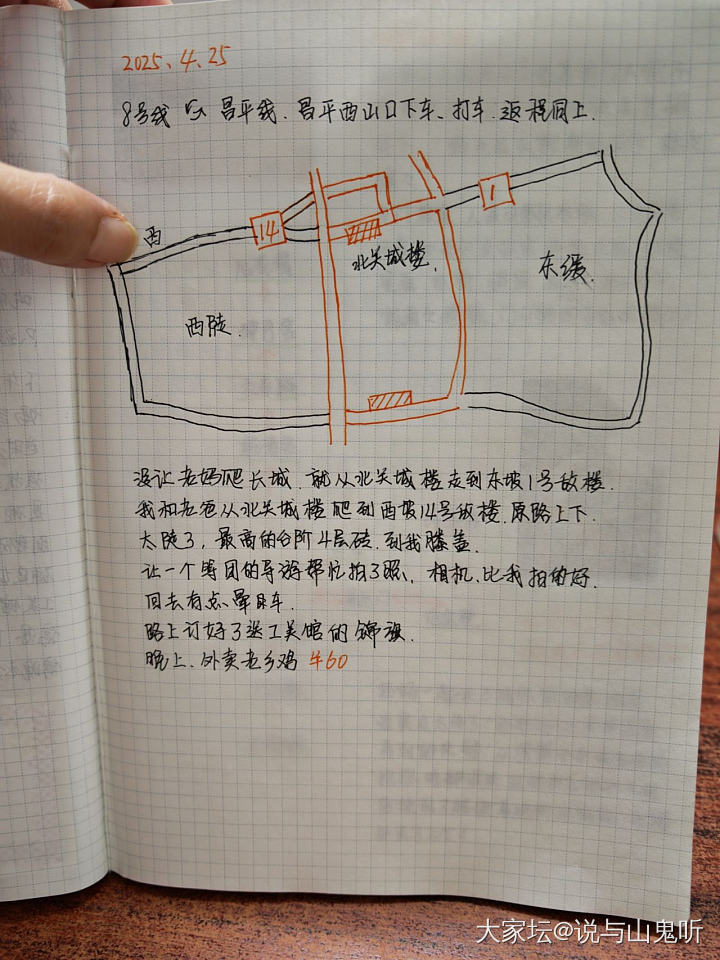 2025、4、25
8号线 与 昌平线、昌平西山口下车、打车、返程同上、
西
14
1
北关城楼、
东缓、
西陡、
没让老妈爬长城、就从北关城楼走到东坡1号敌楼、
我和老爸从北关城楼爬到西坡14号敌楼、原路上下、
太陡了，最高的台阶4层砖、到我膝盖、
让一个等团的导游帮忙拍了照、相机、比我拍的好、
回去有点晕车、
路上订好了送工美馆的锦旗、
晚上、外卖老乡鸡 半60
大家坛@说与山鬼听